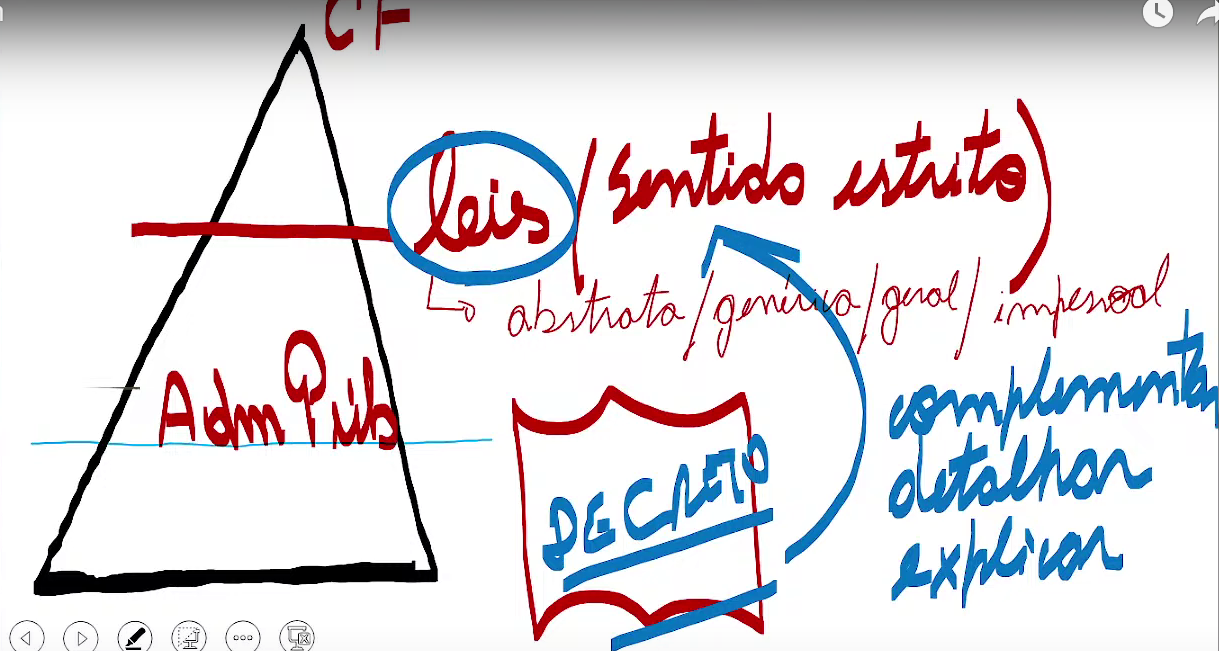 CF
leis (Sentido estrito)
abstrata/genérica/geral/impessoal
Adm Púb
DECRETO
complementar
detalhar
explicar